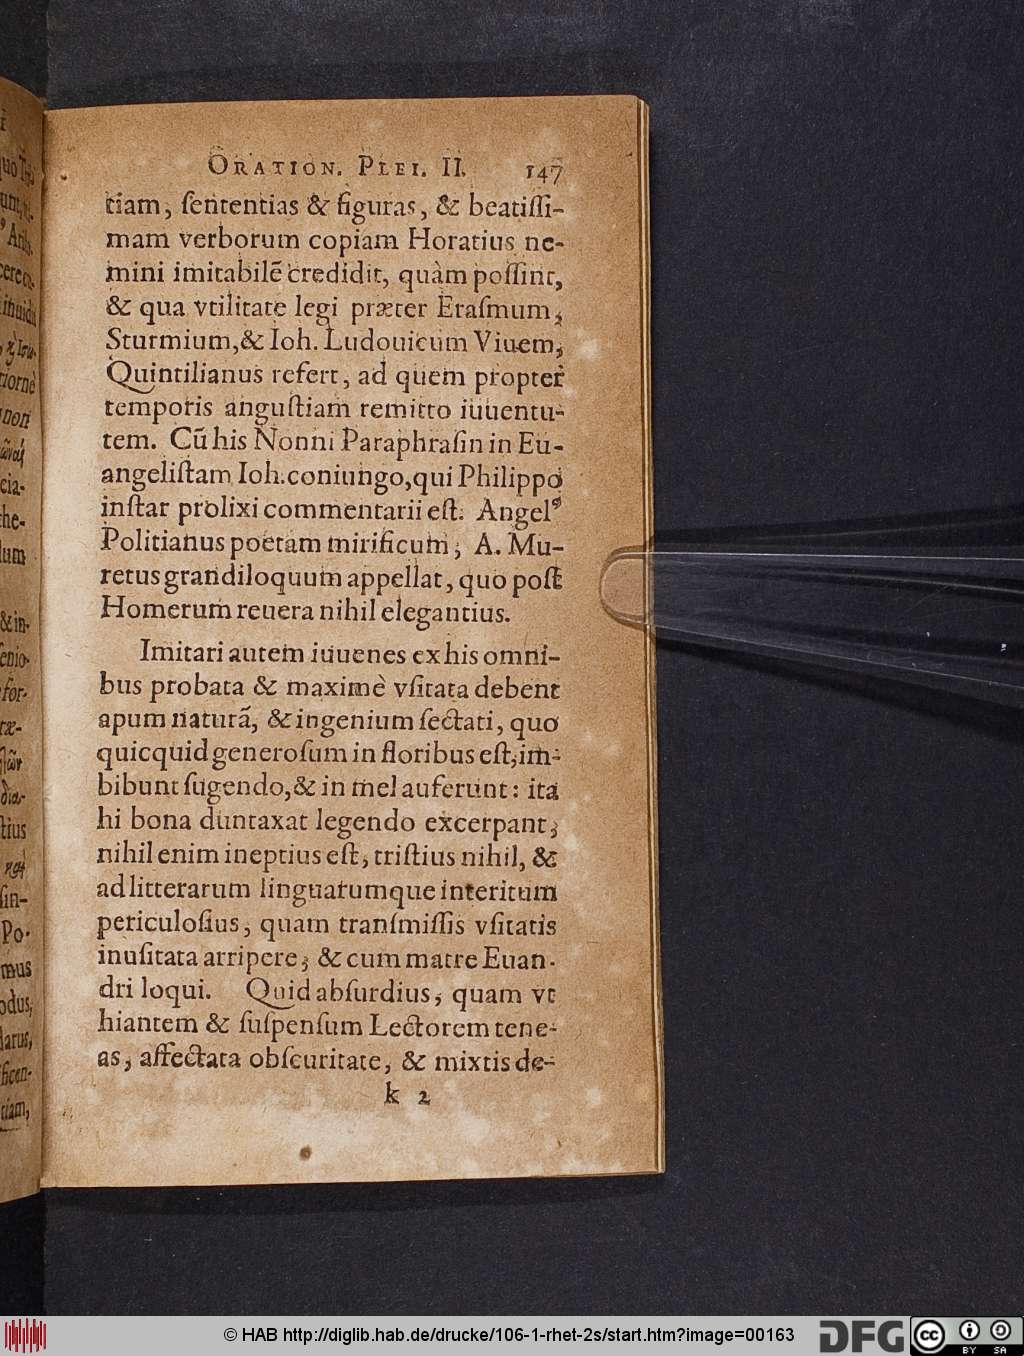 ORATION. PLEI. II. 147
tiam, ſententias & figuras, & beatiſſi-
mam verborum copiam Horatius ne-
mini imitabilẽ credidit, quàm poſſint,
& qua vtilitate legi præter Eraſmum,
Sturmium, & Ioh. Ludouicum Viuem,
Quintilianus refert, ad quem propter
temporis anguſtiam remitto iuuentu-
tem. Cũ his Nonni Paraphraſin in Eu-
angeliſtam Ioh. coniungo, qui Philippo
inſtar prolixi commentarii eſt. Angelꝰ
Politianus poëtam mirificum, A. Mu-
retus grandiloquum appellat, quo poſt
Homerum reuera nihil elegantius.
Imitari autem iuuenes ex his omni-
bus probata & maximè vſitata debent
apum naturã, & ingenium ſectati, quo
quicquid generoſum in floribus eſt, im-
bibunt ſugendo, & in mel auferunt: ita
hi bona duntaxat legendo excerpant,
nihil enim ineptius eſt, triſtius nihil, &
ad litterarum linguarumque interitum
periculoſius, quam tranſmiſſis vſitatis
inuſitata arripere, & cum matre Euan-
dri loqui. Quid abſurdius, quam vt
hiantem & ſuſpenſum Lectorem tene-
as, affectata obſcuritate, & mixtis de-
k 2
© HAB http://diglib.hab.de/drucke/106-1-rhet-2s/start.htm?image=00163
DFG
cc BY SA